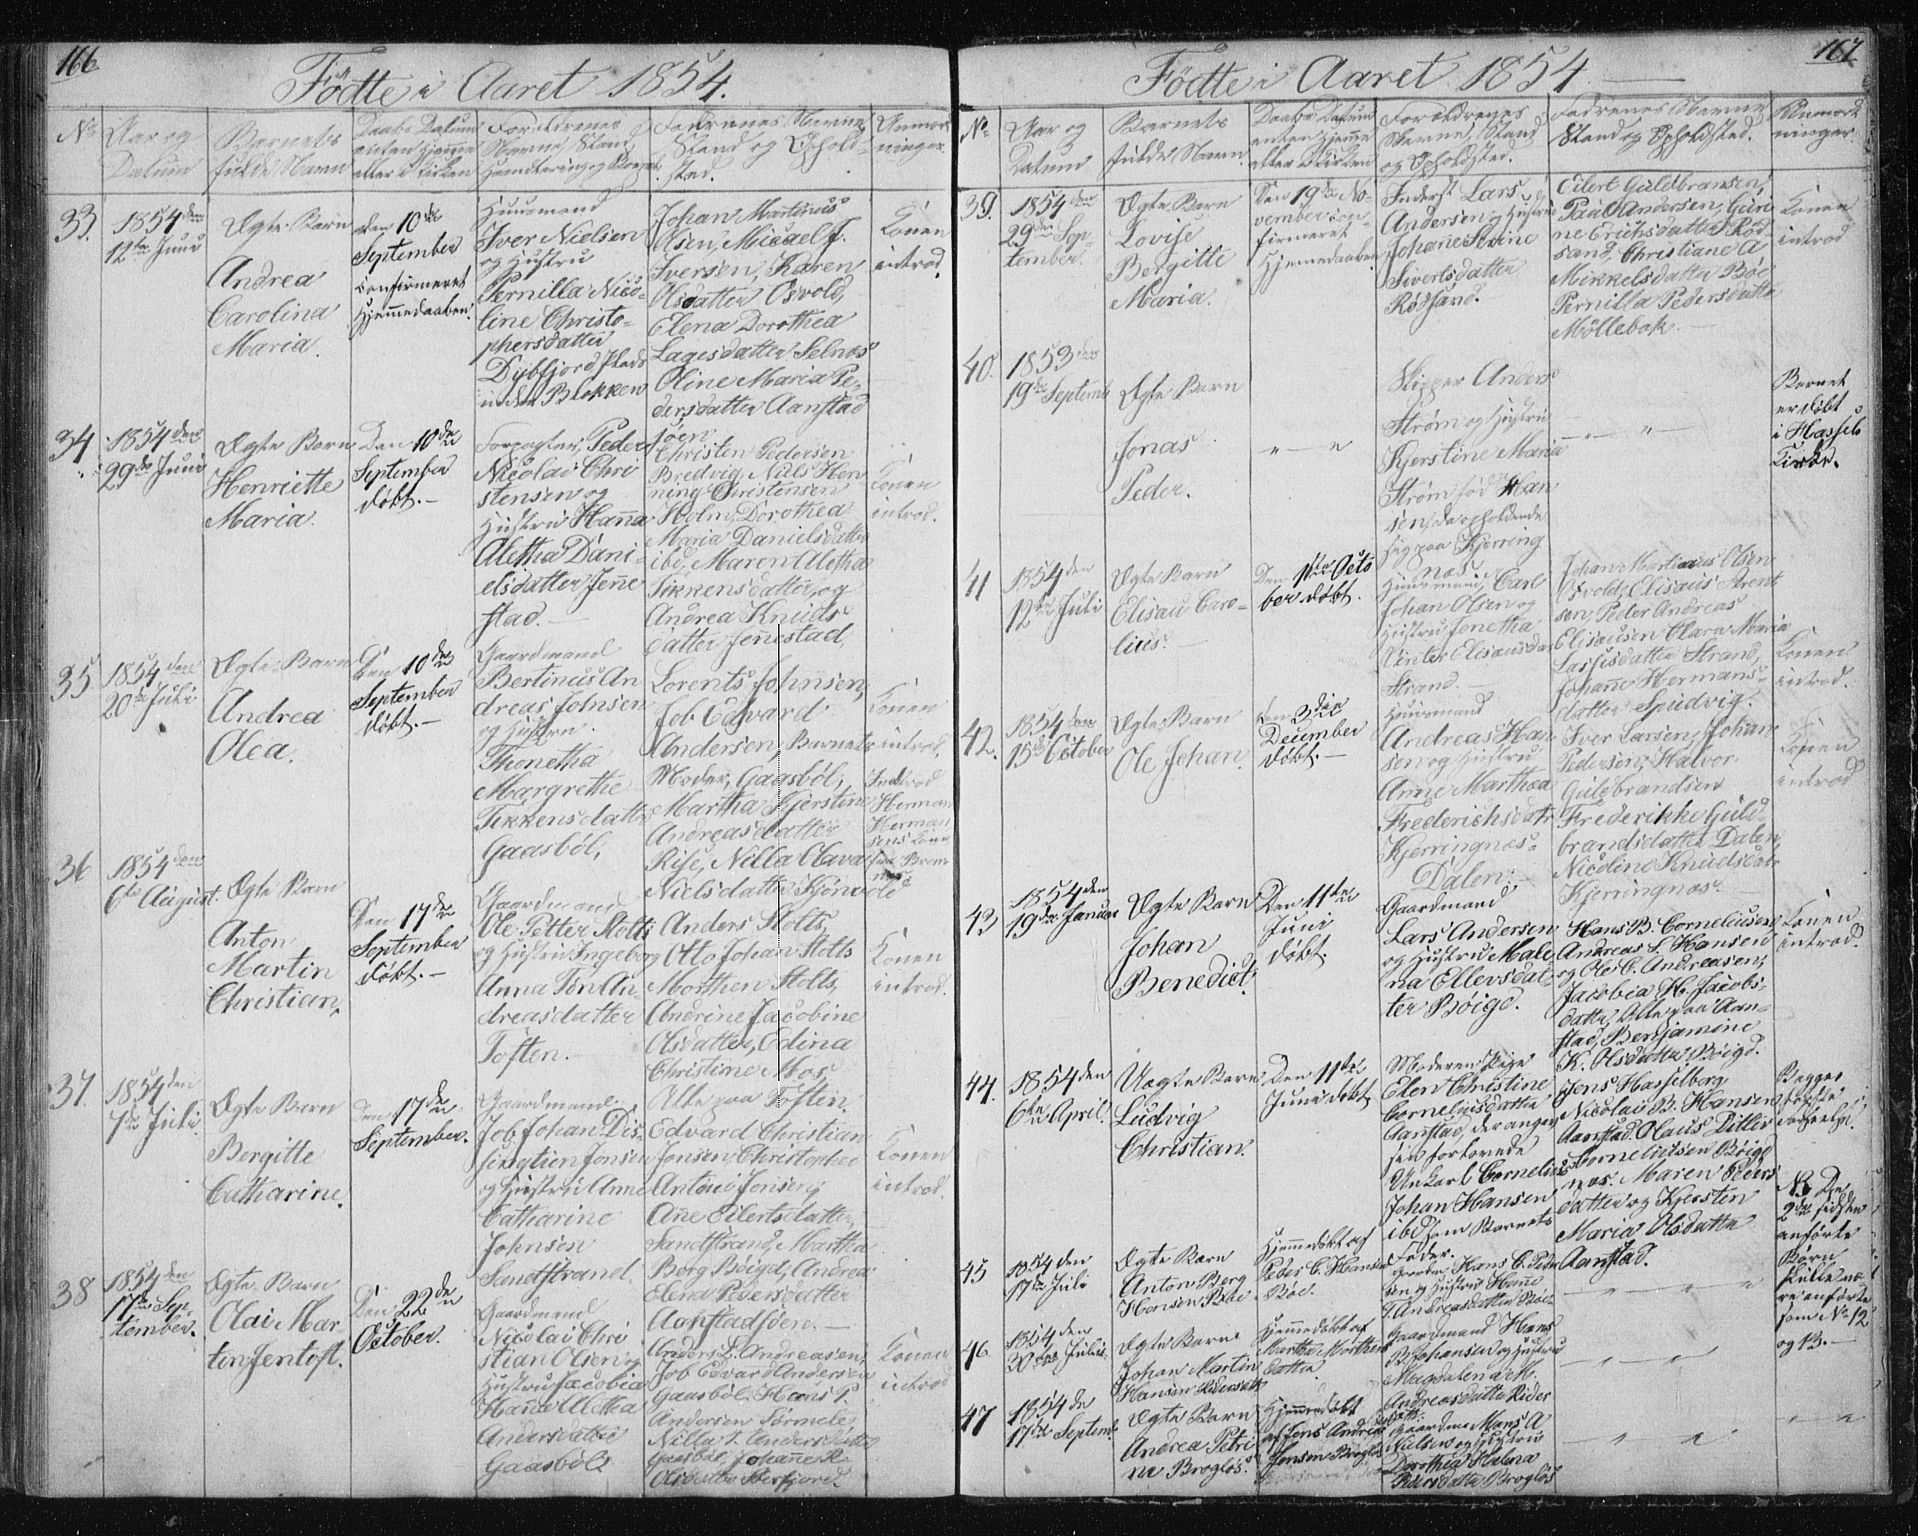 166
Födte i Aaret 1854.
No
Aar og
Datum
Barnets
fulde Navn
Daabs Datum
enten hjemme
eller i Kirken
Forældrenes
Navne, Stand
Fadrenes Navne
Stand og Ophold-
sted.
Anmærk-
ninger.
33.
1854 den
12te Juni
Ægte Barn
Andrea
Carolina
Maria.
den 10de
September
confirmeret
Hjemmedaaben.
Huusmand
Iver Nielsen
og Hustru
Pernilla Nico-
line Christo-
phersdatter
Dybfjord Plads
under Blokken
Johan Martinus
Olsen, Micael J.
Iversen, Karen
Olsdatter Osvold,
Elena Dorothea
Lagesdatter Selnæs
Oline Maria Pe-
dersdatter Aanstad
sjøen
Konen
introd.
34.
1854 den
29de Juni
Ægte Barn
Henriette
Maria.
Den 10de
September
døbt.-
Forpagter, Peder
Nicolai Chri
stensen og
Hustru Hanna
Aletha Dani-
elsdatter Jenne
stad.
Christen Pedersen
Bredvig, Niels Hen
ning Christensen
Holm, Dorothea
Maria Danielsdatter
ibd, Maren Aletha
Tikkensdatter, og
Andrea Knuds
datter Jennestad,
Konen
introd.
35
1854 den
20de Juli
Ægte Barn
Andrea
Olea.
Den 10de
September
døbt.-
Gaardmand
Bertinus An
dreas Johnsen
og Hustru
Thonetha
Margrethe
Tikkensdatter
Gaasböl,
Lorents Johnsen,
Job Edvard
Andersen, Barnets
Moder, Gaasböl,
Martha Kjerstine
Andreasdatter
Rise, Nilla Olava
Nielsdatter
Konen
introd.
Introd
Herman
Herman
sens Kone
fra Brem
næs
36
1854 den
6te August.
Ægte Barn
Anton
Martin
Christian,
Den 17de
September
døbt.-
Gaardmand
Ole Petter Stolts
og Hustru Ingeborg
Anna An-
dreasdatter
Toften.-
Anders Stolts,
Otto Johan Stolts
Morthen Stolts,
Andrine Jacobine
Olsdatter, Edina
Christine Moe
Alle paa Toften.
Konen
introd.
37.
1854 den
7de Juli.
Ægte Barn
Bergitte
Catharine.
den 17de
September.
Gaardmand
Job Johan Dis-
Jonsen
og Hustru Anne
Catharine
Johnsen
Sandstrand.
Edvard Christian
Jonsen Christopher
Antoni Jensen,
Ane Eilertsdatter,
Sandstrand, Martha
Berg Bøigd, Andrea
Elena Pedersdatter
Aanstadsjöen.-
Konen
introd.
38
1854 den
17de Sep-
tember.
Ægte Barn
Olai Mar
tin Jentoft.
Den 22de
October.
Gaardmand
Nicolai Chri
stian Olsen og
Hustru Jacobia
Hanna Aletha
Andersdatter
Gaasböl
Anders L. Andreasen,
Job Edvard Andersen
Gaasböl, Hans P.
Andersen
Nilla T. Andersdatter
Gaasböl, Johanne R.
Olsdatter
Konen
introd
167
Födte i Aaret 1854
No.
Aar og
Datum
Barnets
fulde Navn
Daabs Datum
enten hjemme
eller i Kirken
Forældrenes
Navne, Stand
og Opholdsted.
Fadrenes Navne
Stand og Opholdsted.
Anmærk
ninger.
39.
1854 den
29de Sep-
tember.
Ægte Barn
Lovise
Bergitte
Maria.
Den 19de No-
vember con-
firmeret
Hjemmedaaben
Inderst Lars
Andersen og Hustru
Johane Sevine
Sivertsdatter
Rödsand.
Eilert Guldbransen,
Paul Andersen, Guri-
ne Erichsdatter Röd-
sand, Christiane A
Mikkelsdatter Böe
Pernilla Pedersdatter
Möllebak.-
Konen
introd
40.
1853 den
19de Septemb
Ægte Barn
Jonas
Peder.
" — "
Skipper Anders
Strøm og Hustru
Kjerstine Maria
Strøm född Han
sen, da opholdende
sig paa Kjerring
næs
— " — " —
Barnet
er døbt
i Hassels
Kirke.
41
1854 den
12te Juli
Ægte Barn
Elisau Caro-
lius.
Den 1ste Octo
ber døbt.
Huusmand, Carl
Johan Olsen og
Hustru Jonetha,
Vinter Elisausdatter
Strand.-
Johan Martinus Olsen
Osvold, Elisaus Arent
sen, Peder Andreas
Elisausen Clara Maria
Lassisdatter Strand,
Johanne Hermans-
datter Spidvig.
Konen
introd.
42.
1854 den
15de October
Ægte Barn
Ole Johan
den 3die
December
døbt.-
Huusmand
Andreas Han
sen og Hustru
Anne Marthea
Frederichsdatr
Kjerringnæs-
Dalen.
Iver Larsen, Johan
Pedersen, Halvor
Gulebrandsen
Frederikke Guld-
brandsdatter Dalen,
Nicoline Knudsdatr
Kjerringnæs.
Konen
introd
43
1854 den
19de Januar
Ægte Barn
Johan
Benedict.
Den 11te
Juni
døbt.
Gaardmand
Lars Andersen
og Hustru Male-
na Ellersdat-
ter Bøigd.
Hans B. Corneliusen
Andreas L. Hansen
og Ole C. Andreasen,
Jacobia H. Jacobs-
datter, Alle paa Aan-
stad, Benjamine
K. Olsdatter Bøigd.
Konen
introd.
44.
1854 den
6te April.
Uægte Barn
Ludvig
Christian.
Den 11te
Juni døbt
Moderen Pige
Elen Christine
Corneliusdatter
Aanstad, der angav
sin forlovede
Unkarl Cornelius
Johan Hansen
ibd, som Barnets
Fader.
Jens Hasselberg
Nicolai B. Hansen
Aanstad. Olaus Pitter
Corneliusen Bøigd
Maren Peders
datter og Kjersten
Maria Olsdatter
Aanstad.
Begges
første
45
1854 den
17de Juli
Ægte Barn
Anton Berg
Hansen Böe
Hjemmedöbt af
Peder C. Hansen
Böe.
Hans C. Peder
sen og Hustru
Andreasdatter Böe
" " "
NB De
2de sidsten
anförte
Börn
skulle væ-
re anförte
som No 12
og 13.-
46
1854 den
30de Juli
Ægte Barn
Johan Martin
Hansen
Hjemmedöbt af
Martha Morthens
datter.
Gaardmand Hans
B. Johansen og Hustru
Magdalena M.
Andreasdatter
" " "
47
1854 de
17de Septemb
Ægte Barn
Andrea Petri
ne Brogløs.
Hjemmedöbt
af Jens Andreas
Jensen Brogløs
Gaardm. Mons A
Nielsen og Hustru
Dorothea Halena
Pedersdatter Brogløs
" "
" "